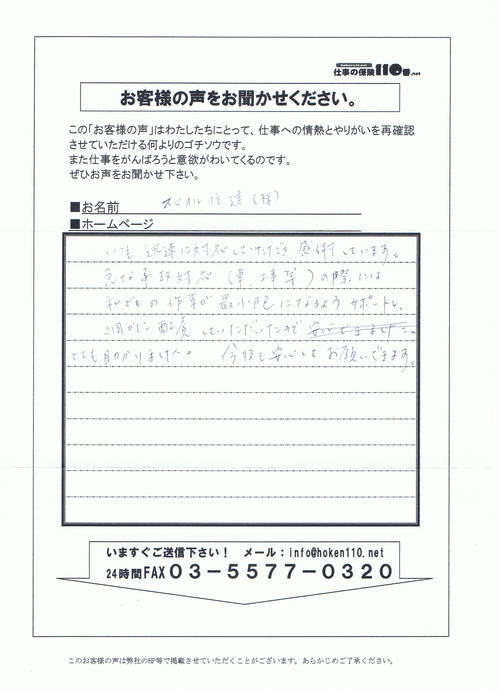 仕事の保険110番.net
お客様の声をお聞かせください。
この「お客様の声」はわたしたちにとって、仕事への情熱とやりがいを再確認
させていただける何よりのゴチソウです。
また仕事をがんばろうと意欲がわいてくるのです。
ぜひお声をお聞かせ下さい。
■お名前 住建(株)
■ホームページ
いつも迅速に対応していただき感謝しています。
急な事故対応(車、工事等)の際には
私どもの作業が最小限になるようサポートし、
細かに配慮していただいたので安心できました。
とても助かりました。 今後も安心してお願いできます。
いますぐご送信下さい! メール:info@hoken110.net
24時間FAX03-5577-0320
このお客様の声は弊社のHP等で掲載させていただくことがございます。あらかじめご了承ください。